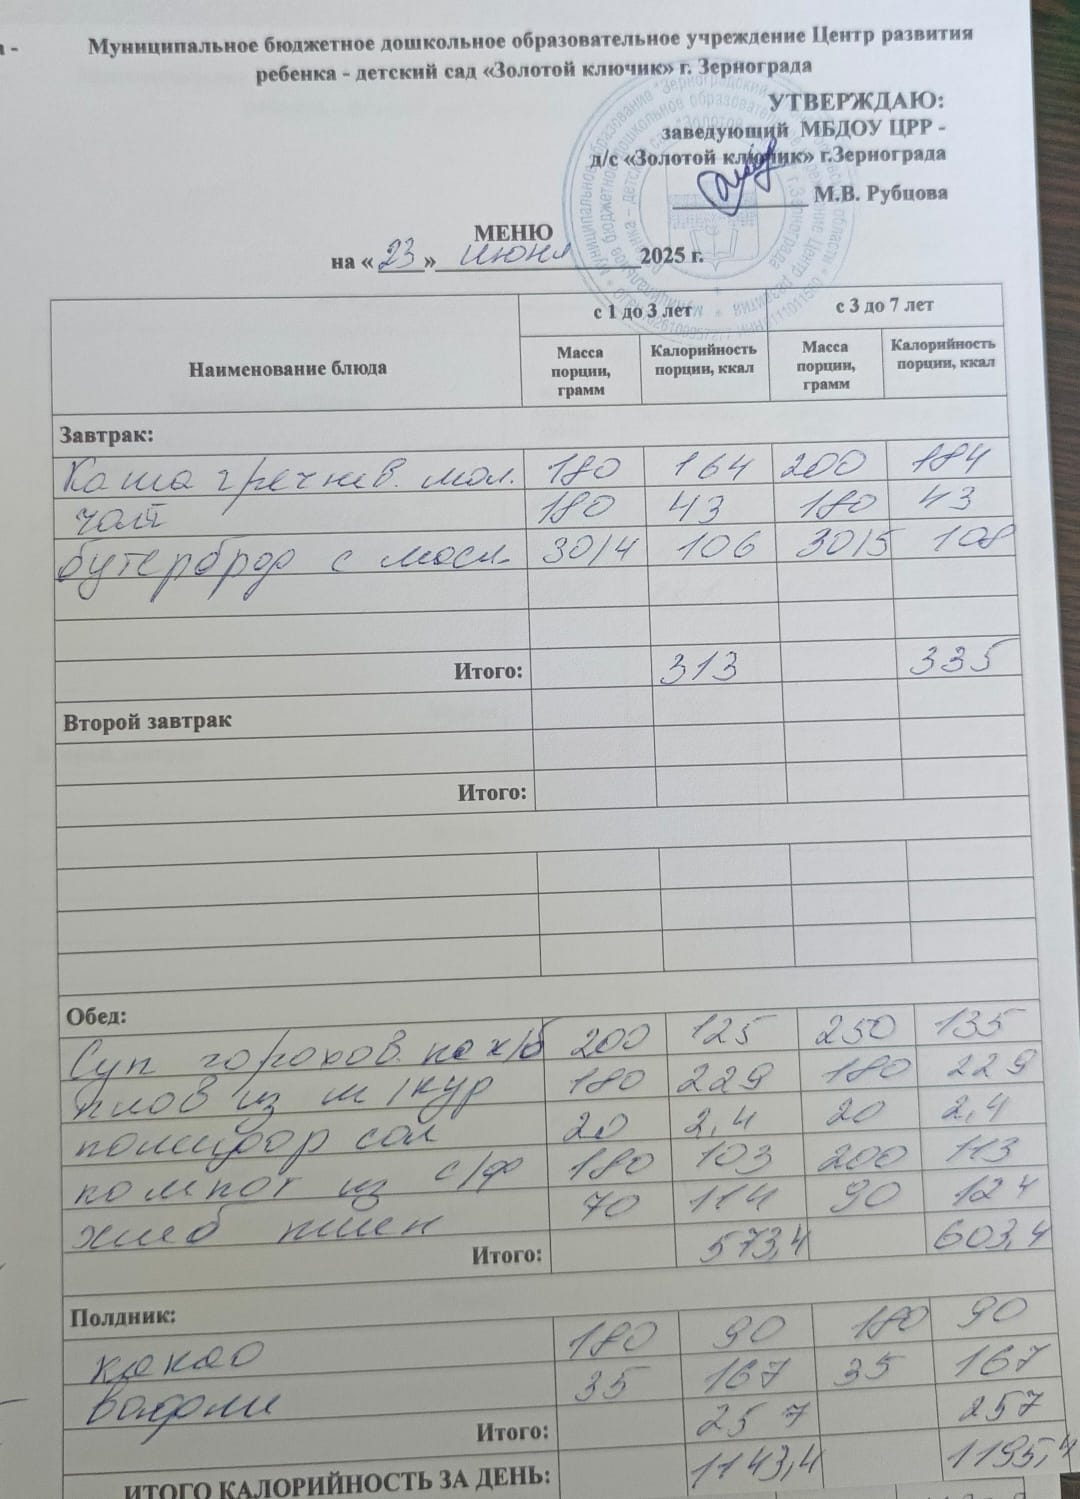 Муниципальное бюджетное дошкольное образовательное учреждение Центр развития
ребенка - детский сад «Золотой ключик» г. Зернограда
УТВЕРЖДАЮ:
заведующий МБДОУ ЦРР -
д/с «Золотой ключик» г.Зернограда
М.В. Рубцова
МЕНЮ
на « 23 » июня 2025 г.
Наименование блюда с 1 до 3 лет с 3 до 7 лет
Масса порции, грамм Калорийность порции, ккал Масса порции, грамм Калорийность порции, ккал
Завтрак:
Каша гречнев. мол. 180 164 200 184
чай 180 43 180 43
бутерброд с масл. 30/4 106 30/5 108
Итого: 313 335
Второй завтрак
Итого:
Обед:
Суп горохов. на к/б 200 125 250 135
плов из м/кур 180 229 180 229
помидор сол 20 2,4 20 2,4
компот из с/ф 180 103 200 113
хлеб пшен 70 114 90 124
Итого: 573,4 603,4
Полдник:
какао 180 90 180 90
вафли 35 167 35 167
Итого: 257 257
ИТОГО КАЛОРИЙНОСТЬ ЗА ДЕНЬ: 1143,4 1195,4